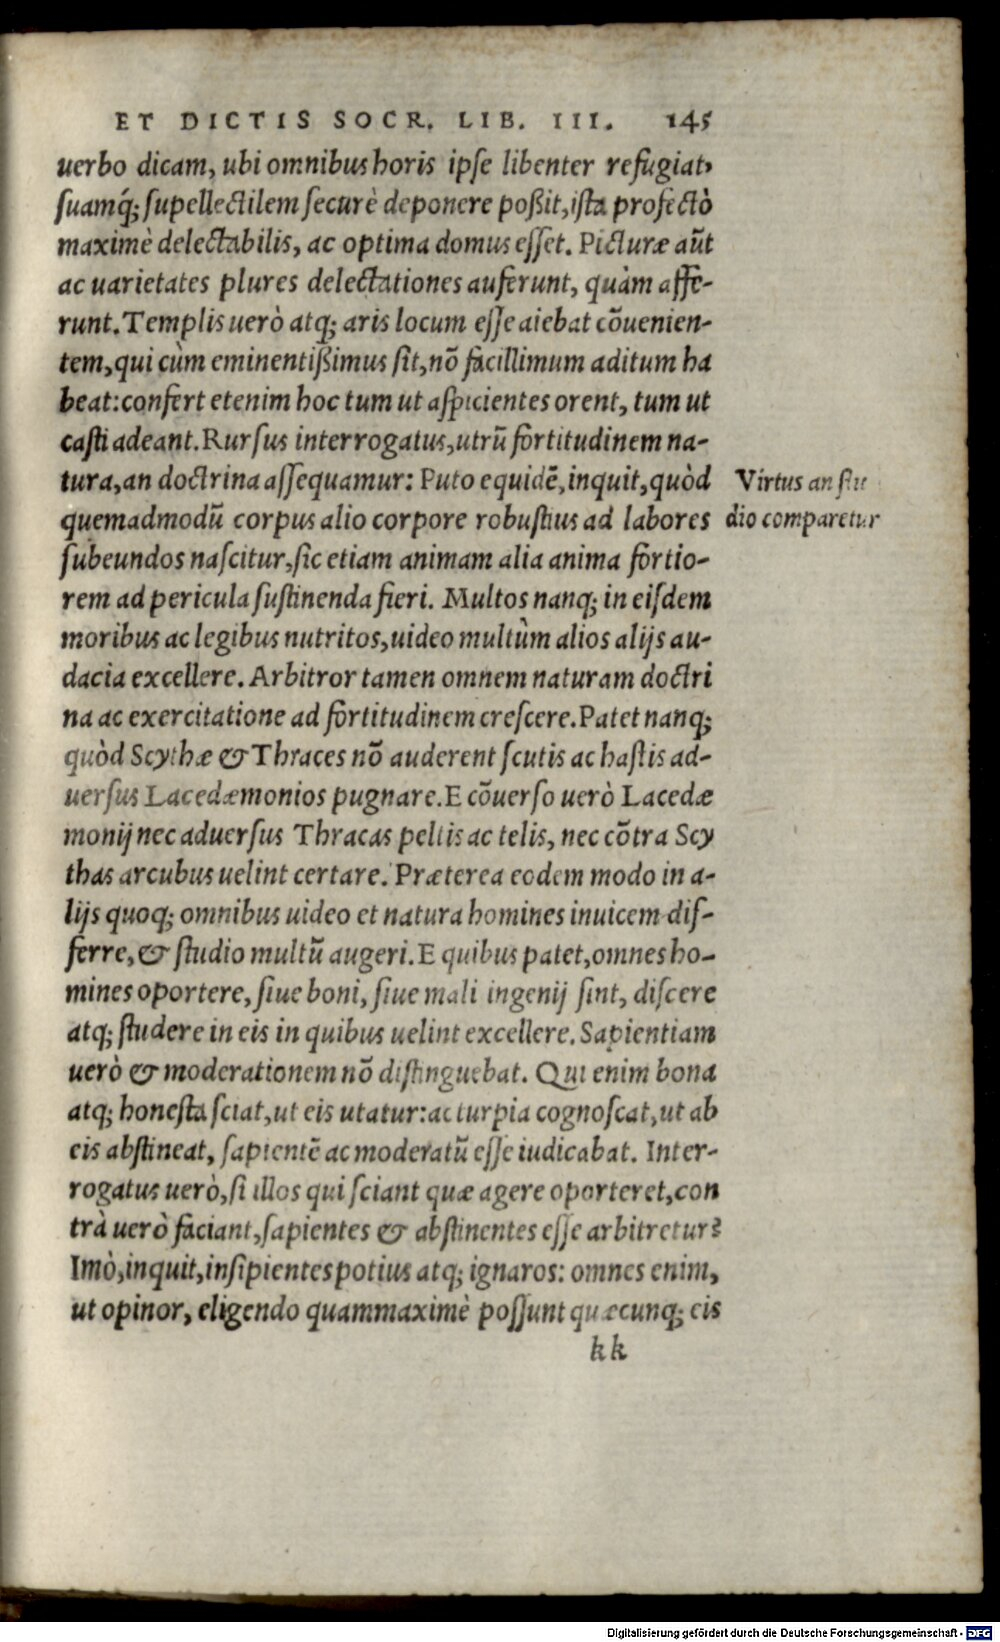 ET DICTIS SOCR. LIB. III. 145
uerbo dicam, ubi omnibus horis ipse libenter refugiat,
suamq́; supellectilem securè deponere poßit, ista profectò
maximè delectabilis, ac optima domus esset. Picturæ aũt
ac uarietates plures delectationes auferunt, quàm affe-
runt. Templis uerò atq; aris locum esse aiebat cõuenien-
tem, qui cùm eminentißimus sit, nõ facillimum aditum ha
beat: confert etenim hoc tum ut aspicientes orent, tum ut
casti adeant. Rursus interrogatus, utrũ fortitudinem na-
tura, an doctrina assequamur: Puto equidẽ, inquit, quòd
Virtus an stu
quemadmodũ corpus alio corpore robustius ad labores
dio comparetur
subeundos nascitur, sic etiam animam alia anima fortio-
rem ad pericula sustinenda fieri. Multos nanq; in eisdem
moribus ac legibus nutritos, uideo multùm alios alijs au-
dacia excellere. Arbitror tamen omnem naturam doctri
na ac exercitatione ad fortitudinem crescere. Patet nanq;
quòd Scythæ & Thraces nõ auderent scutis ac hastis ad-
uersus Lacedæmonios pugnare. E cõuerso uerò Lacedæ
monij nec aduersus Thracas peltis ac telis, nec cõtra Scy
thas arcubus uelint certare. Præterea eodem modo in a-
lijs quoq; omnibus uideo et natura homines inuicem dif-
ferre, & studio multũ augeri. E quibus patet, omnes ho-
mines oportere, siue boni, siue mali ingenij sint, discere
atq; studere in eis in quibus uelint excellere. Sapientiam
uerò & moderationem nõ distinguebat. Qui enim bona
atq; honesta sciat, ut eis utatur: ac turpia cognoscat, ut ab
eis abstineat, sapientẽ ac moderatũ esse iudicabat. Inter-
rogatus uerò, si illos qui sciant quæ agere oporteret, con
trà uerò faciant, sapientes & abstinentes esse arbitretur?
Imò, inquit, insipientes potius atq; ignaros: omnes enim,
ut opinor, eligendo quammaximè possunt quæcunq; eis
kk
Digitalisierung gefördert durch die Deutsche Forschungsgemeinschaft - DFG